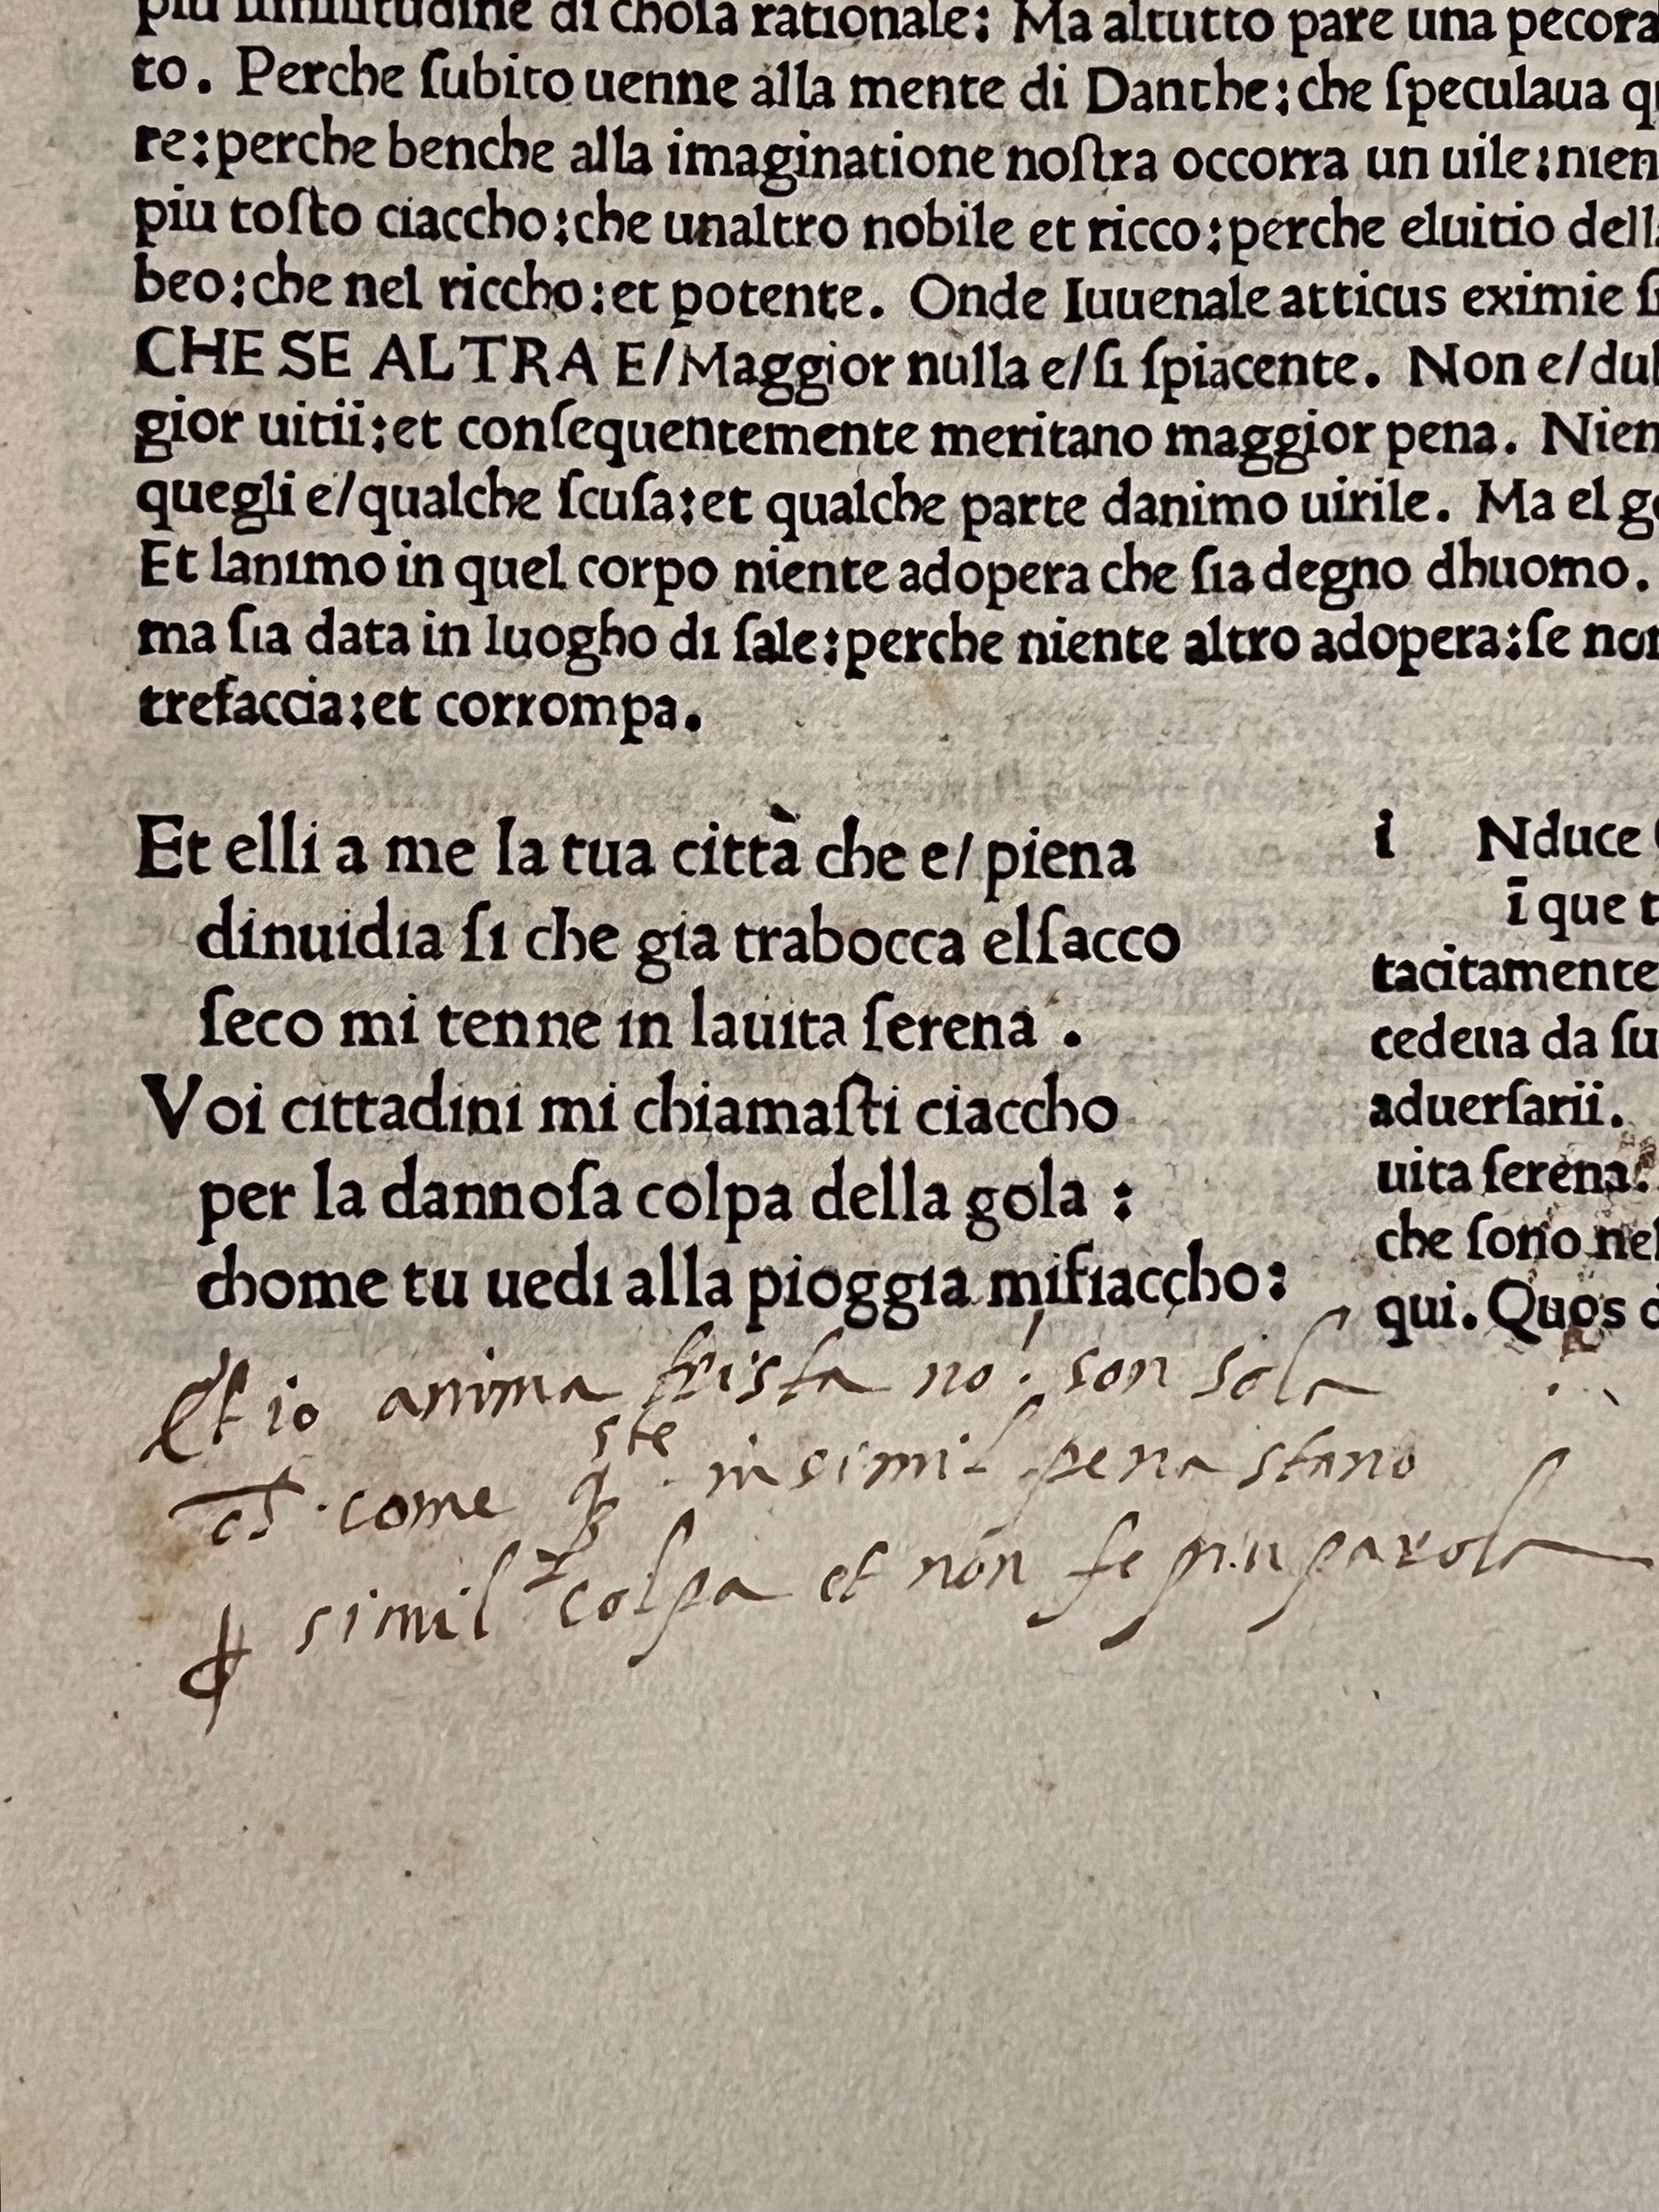 to. Perche ſubito uenne alla mente di Danthe:che ſpeculaua
re:perche benche alla imaginatione noſtra occorra un uile:nien
piu toſto ciaccho:che unaltro nobile et ricco:perche eluitio dell
beo:che nel riccho:et potente. Onde Iuuenale atticus eximie ſi
CHE SE ALTRA E/Maggior nulla e/ſi ſpiacente. Non e/dub
gior uitii:et conſequentemente meritano maggior pena. Nien
quegli e/qualche ſcuſa:et qualche parte danimo uirile. Ma el go
Et lanimo in quel corpo niente adopera che ſia degno dhuomo.
ma ſia data in luogho di ſale:perche niente altro adopera:ſe non
trefaccia:et corrompa.
Et elli a me la tua città che e/ piena
dinuidia ſi che gia trabocca elſacco
ſeco mi tenne in lauita ſerena .
Voi cittadini mi chiamaſti ciaccho
per la dannoſa colpa della gola :
chome tu uedi alla pioggia mifiaccho:
i Nduce
ī que t
tacitamente
cedeua da ſu
aduerſarii.
uita ſerena.
che ſono nel
qui. Quos
Et io anima trista no son sola
come qste in simil pena stano
ꝑ simil colpa et non fe piu parola